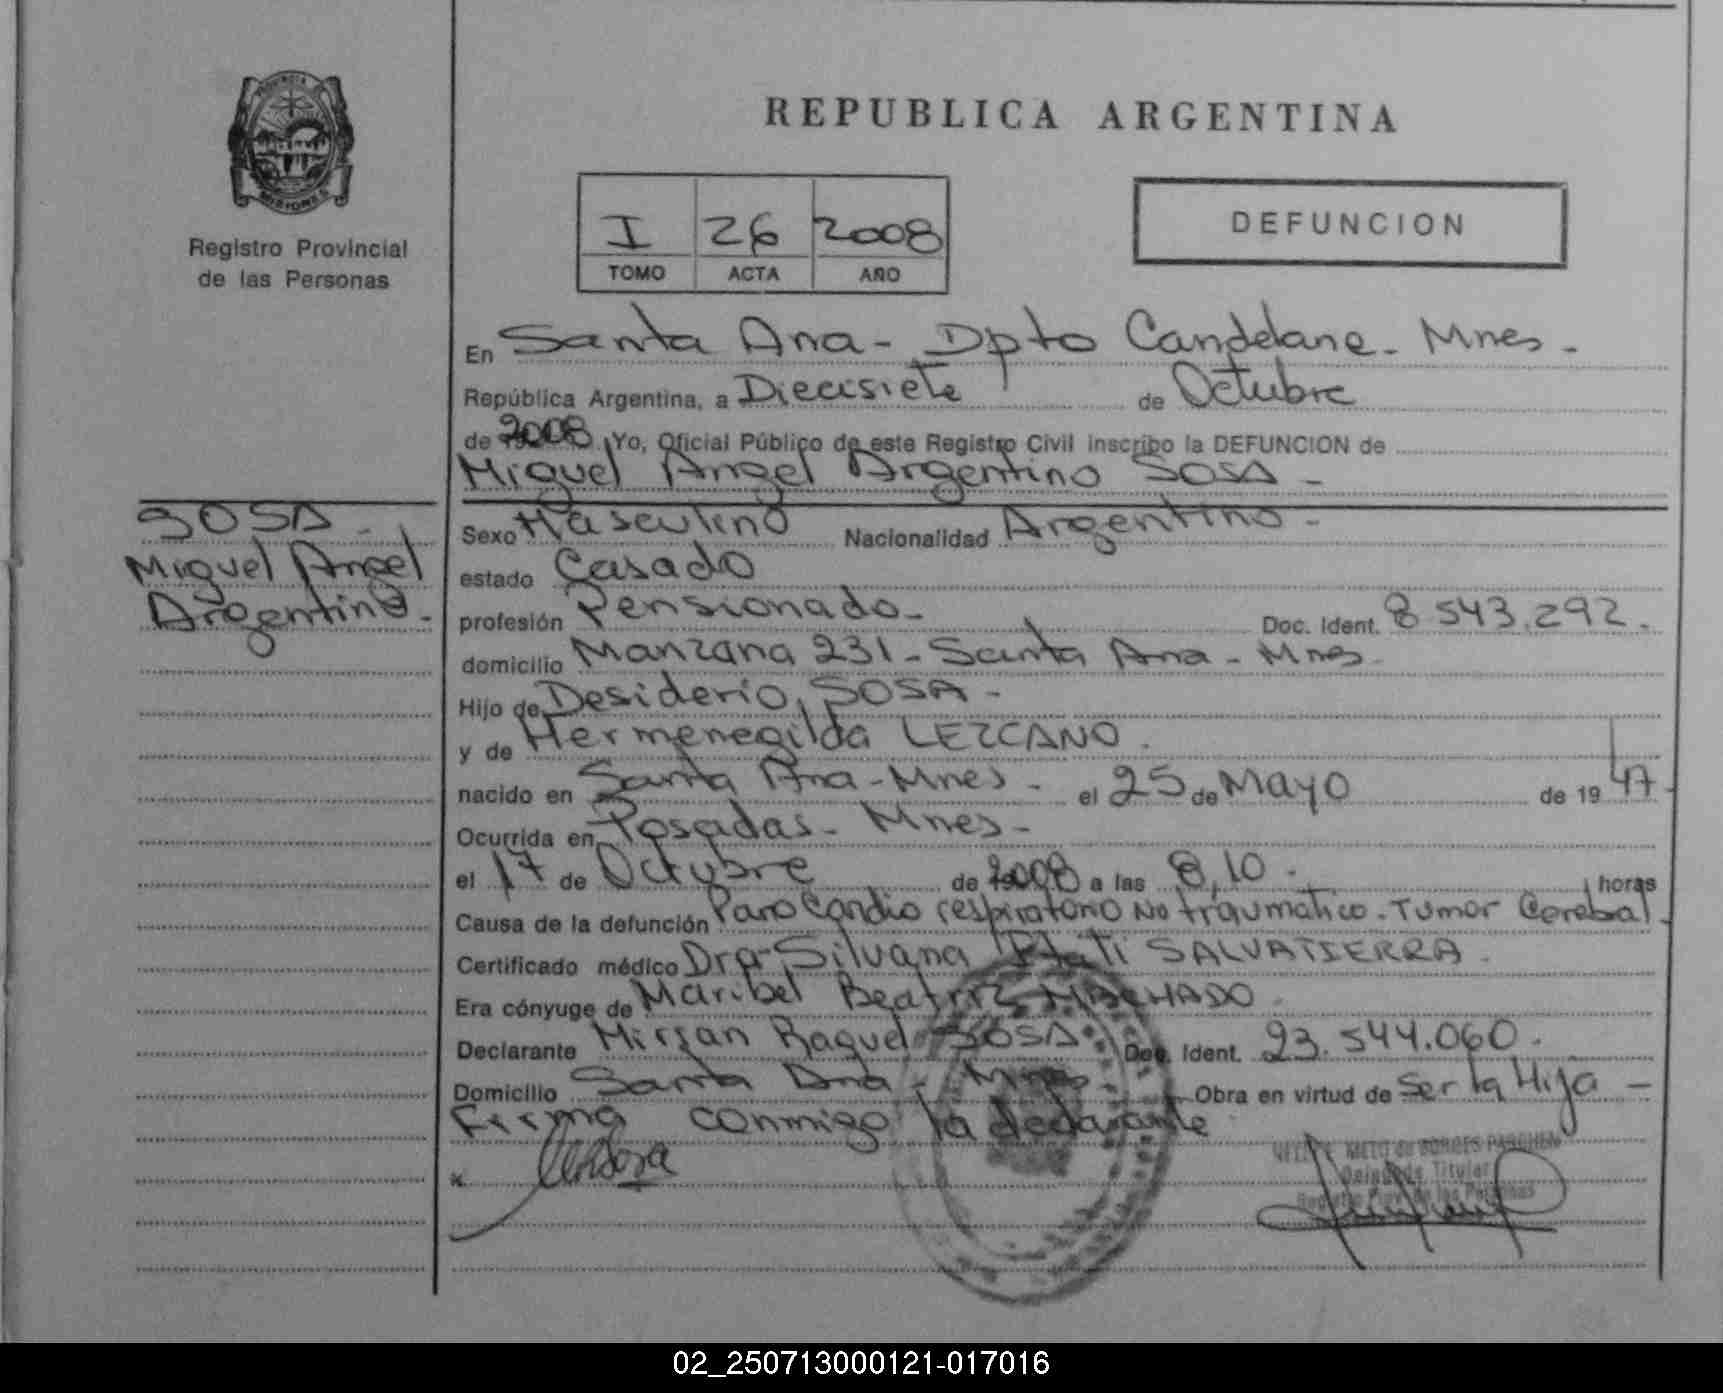 PROVINCIA
MISIONES
Registro Provincial
de las Personas
REPUBLICA ARGENTINA
I 26 2008
TOMO ACTA AÑO
DEFUNCION
En Santa Ana - Dpto Candelaria - Mnes -
República Argentina, a Diecisiete de Octubre
de 2008. Yo, Oficial Público de este Registro Civil inscribo la DEFUNCION de
Miguel Angel Argentino SOSA -
SOSA -
Miguel Angel
Argentino -
Sexo Masculino Nacionalidad Argentino -
estado Casado
profesión Pensionado - Doc. Ident. 8 543.292.
domicilio Manzana 231 - Santa Ana - Mnes -
Hijo de Desiderio SOSA -
y de Hermenegilda LEZCANO.
nacido en Santa Ana - Mnes - el 25 de Mayo de 1947
Ocurrida en Posadas - Mnes -
el 17 de Octubre de 2008 a las 8,10 - horas
Causa de la defunción Paro Cardio respiratorio No traumatico. Tumor Cerebral.
Certificado médico Dra. Silvana SALVATIERRA.
Era cónyuge de Maribel Beatriz MACHADO.
Declarante Mirian Raquel SOSA Doc. Ident. 23.544.060.
Domicilio Santa Ana - Mnes - Obra en virtud de Ser la Hija -
Firma conmigo la declarante
x
Delegada Titular
Registro Prov. de las Personas
02_250713000121-017016